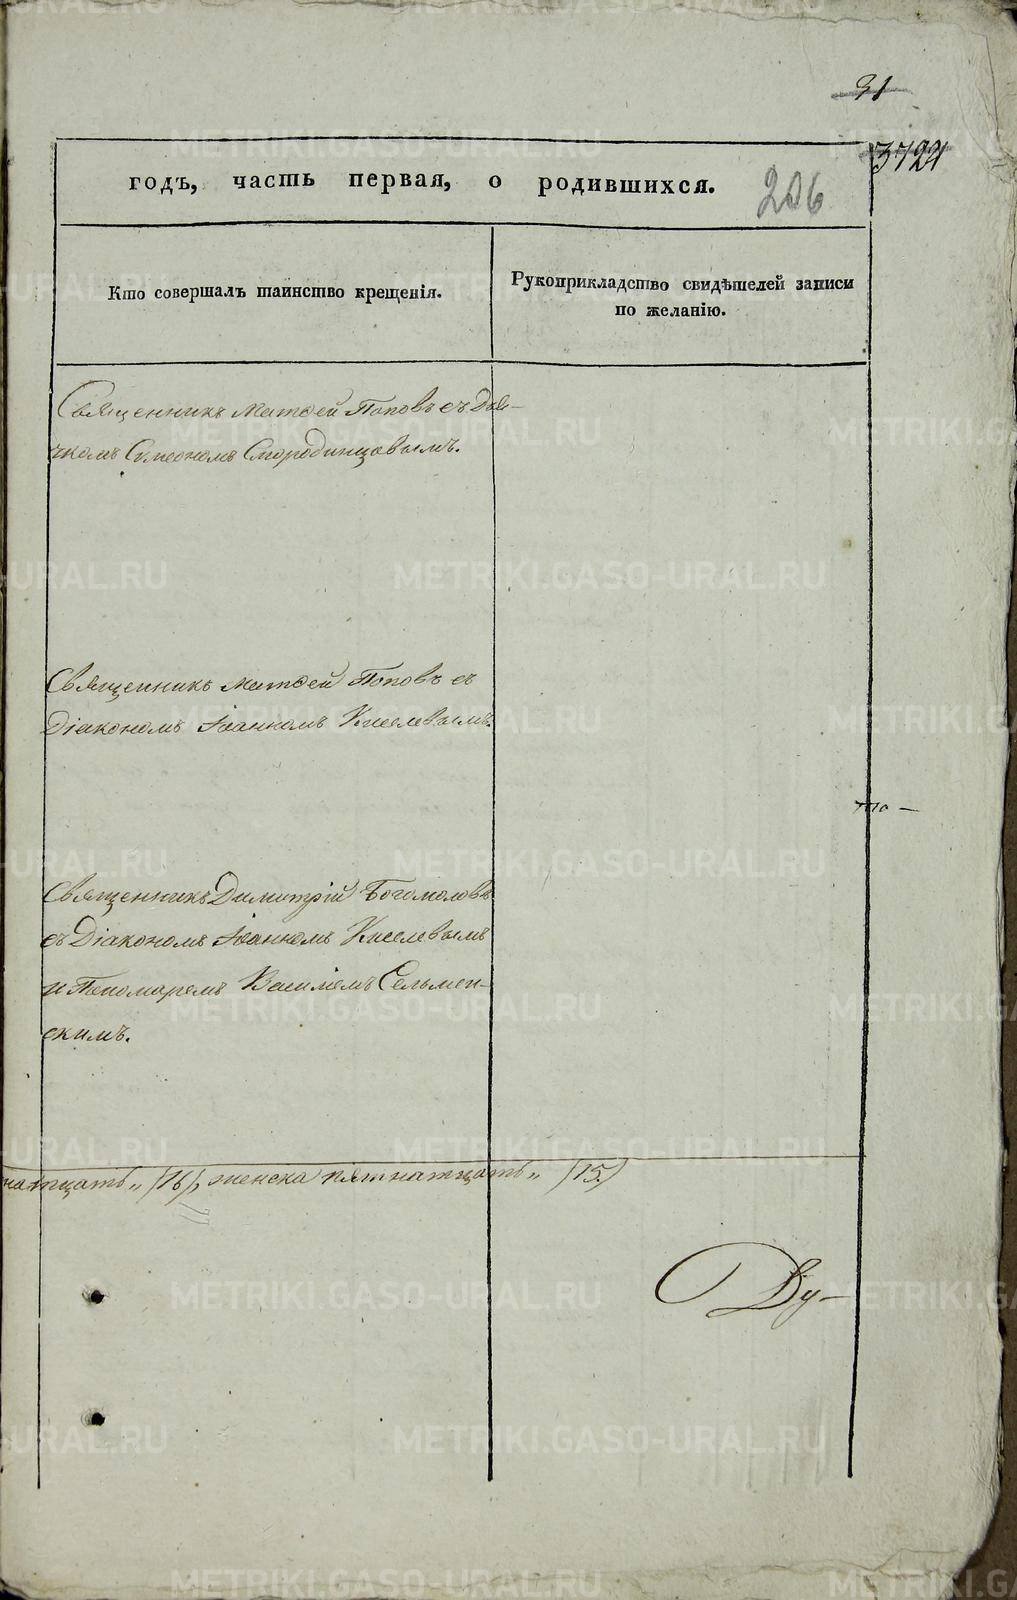 31
3724
годъ, часть первая, о родившихся.
206
Кто совершалъ таинство крещенія.
Рукоприкладство свидѣтелей записи
по желанію.
Священникъ Матѳей Поповъ съ Дья-
чкомъ Сѵмеономъ Смородинцовымъ.
Священникъ Матѳей Поповъ съ
Діакономъ Іоанномъ Киселевымъ.
то —
Священникъ Димитрій Богомоловъ
съ Діакономъ Іоанномъ Киселевымъ
и Пономаремъ Василіемъ Сельмен-
скимъ.
натцать„ (16), женска пятнатцать„ (15.)
Ву-
METRIKI.GASO-URAL.RU